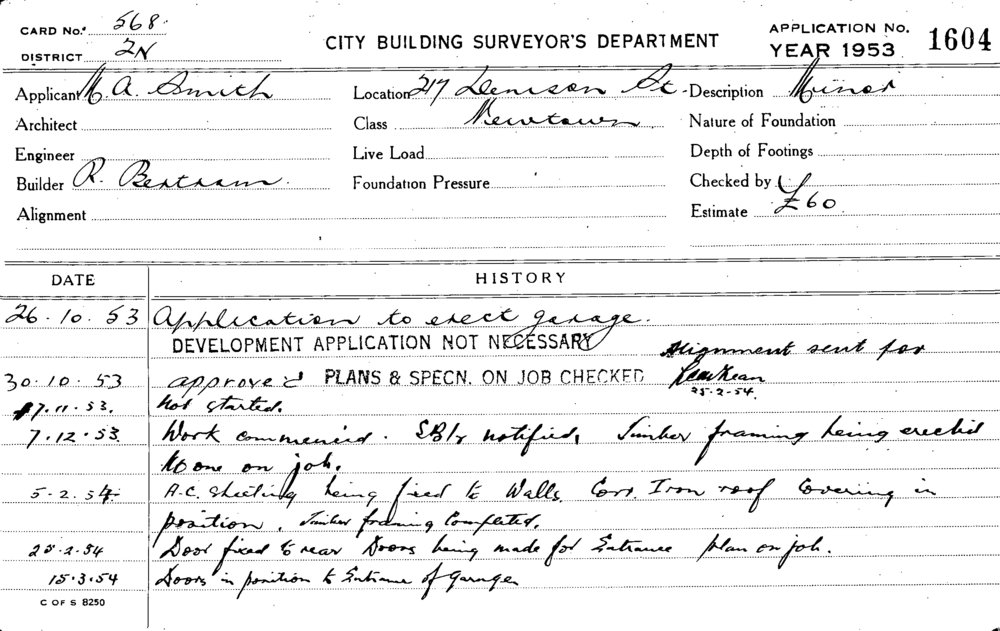 CARD No. 568.
DISTRICT 2N
CITY BUILDING SURVEYOR'S DEPARTMENT
APPLICATION No.
YEAR 1953 1604
Applicant M. A. Smith Location 217 Denison St. Description Minor
Architect Class Newtown Nature of Foundation
Engineer Live Load Depth of Footings
Builder R. Bertram. Foundation Pressure Checked by
Alignment Estimate £60.
DATE HISTORY
26.10.53 Application to erect garage.
DEVELOPMENT APPLICATION NOT NECESSARY
Alignment sent for
30.10.53 approved PLANS & SPECN. ON JOB CHECKED
25.2.54.
17.11.53. Not started.
7.12.53. Work commenced. notified, Timber framing being erected
No one on job.
5.2.54 A.C. sheeting being fixed to Walls, Corr. Iron roof Covering in
position. Timber framing Completed.
25.2.54 Door fixed to rear Doors being made for Entrance plan on job.
15.3.54 Doors in position to Entrance of Garage
C OF S 8250